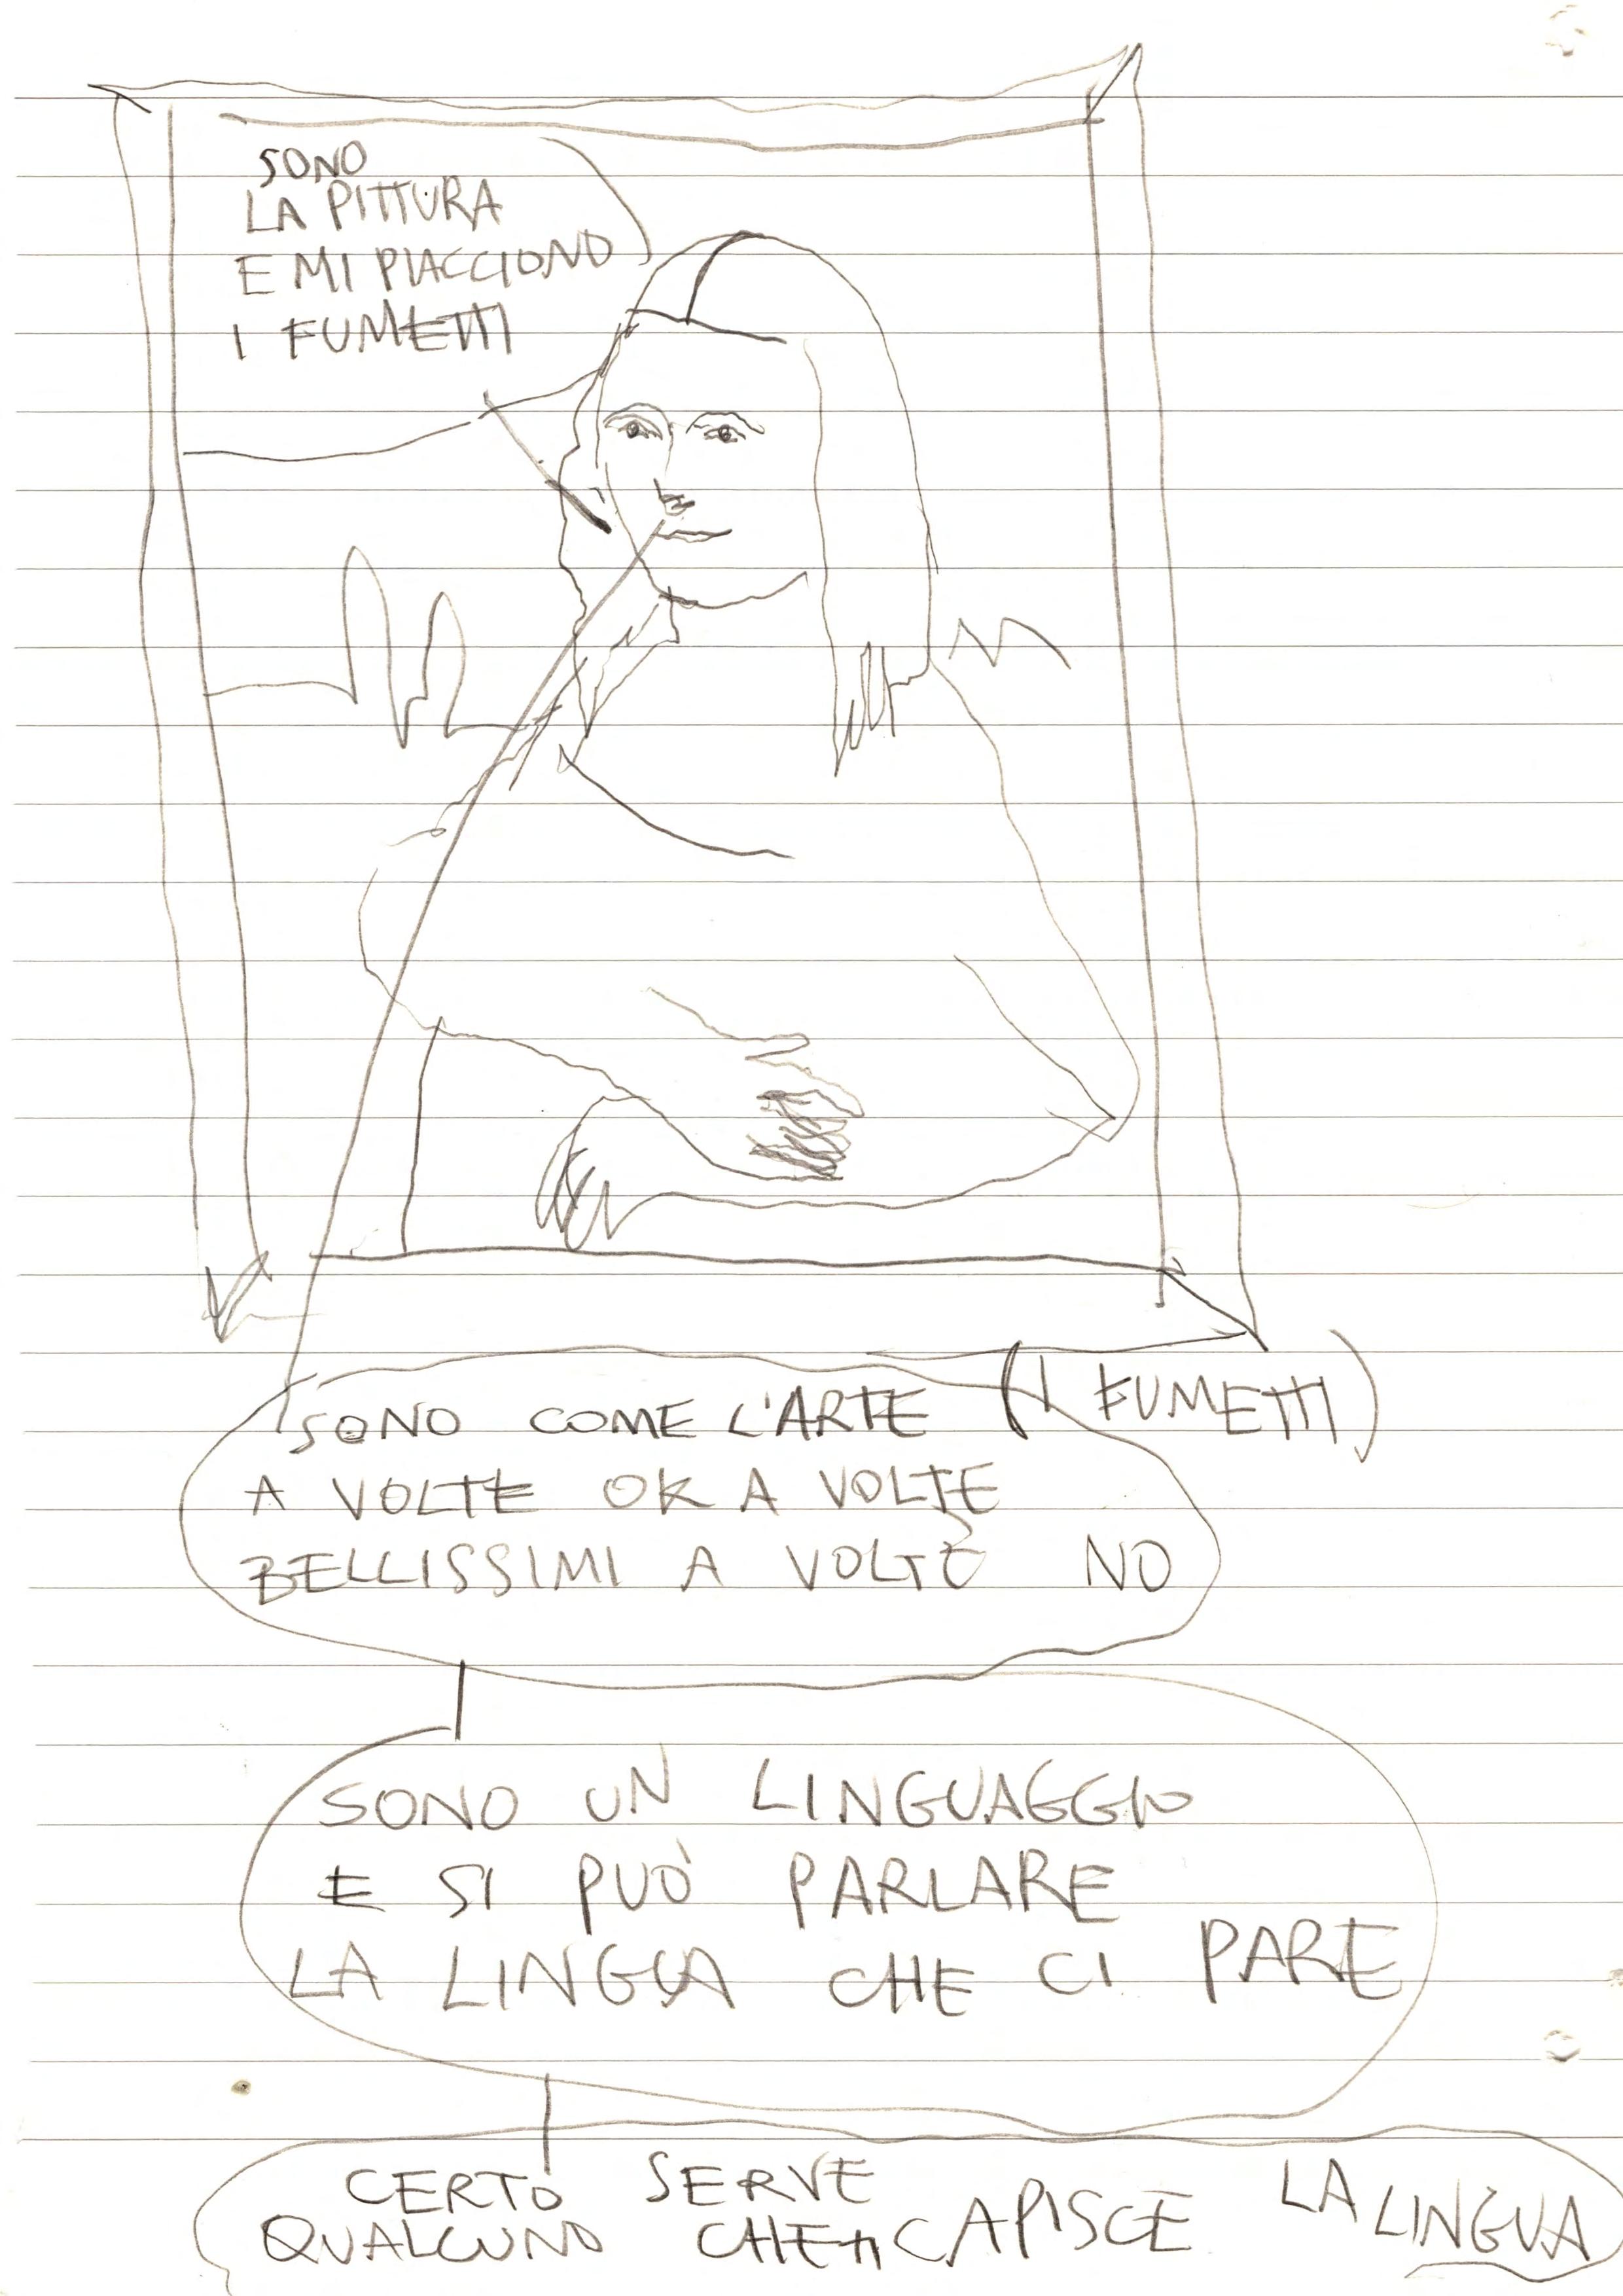 SONO
LA PITTURA
E MI PIACCIONO
I FUMETTI
SONO COME L'ARTE (I FUMETTI)
A VOLTE OK A VOLTE
BELLISSIMI A VOLTE NO
SONO UN LINGUAGGIO
E SI PUÒ PARLARE
LA LINGUA CHE CI PARE
CERTO SERVE
QUALCUNO CHE CAPISCE LA LINGUA